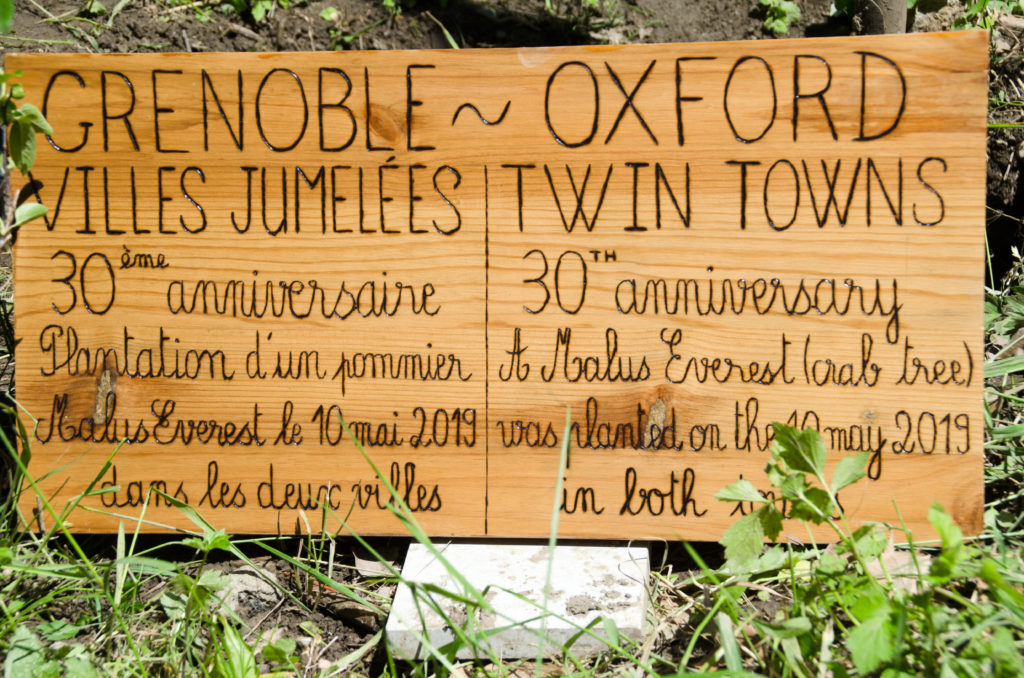 GRENOBLE ~ OXFORD
VILLES JUMELÉES
30ème anniversaire
Plantation d'un pommier
Malus Everest le 10 mai 2019
dans les deux villes
TWIN TOWNS
30TH anniversary
A Malus Everest (crab tree)
was planted on the 10 may 2019
in both